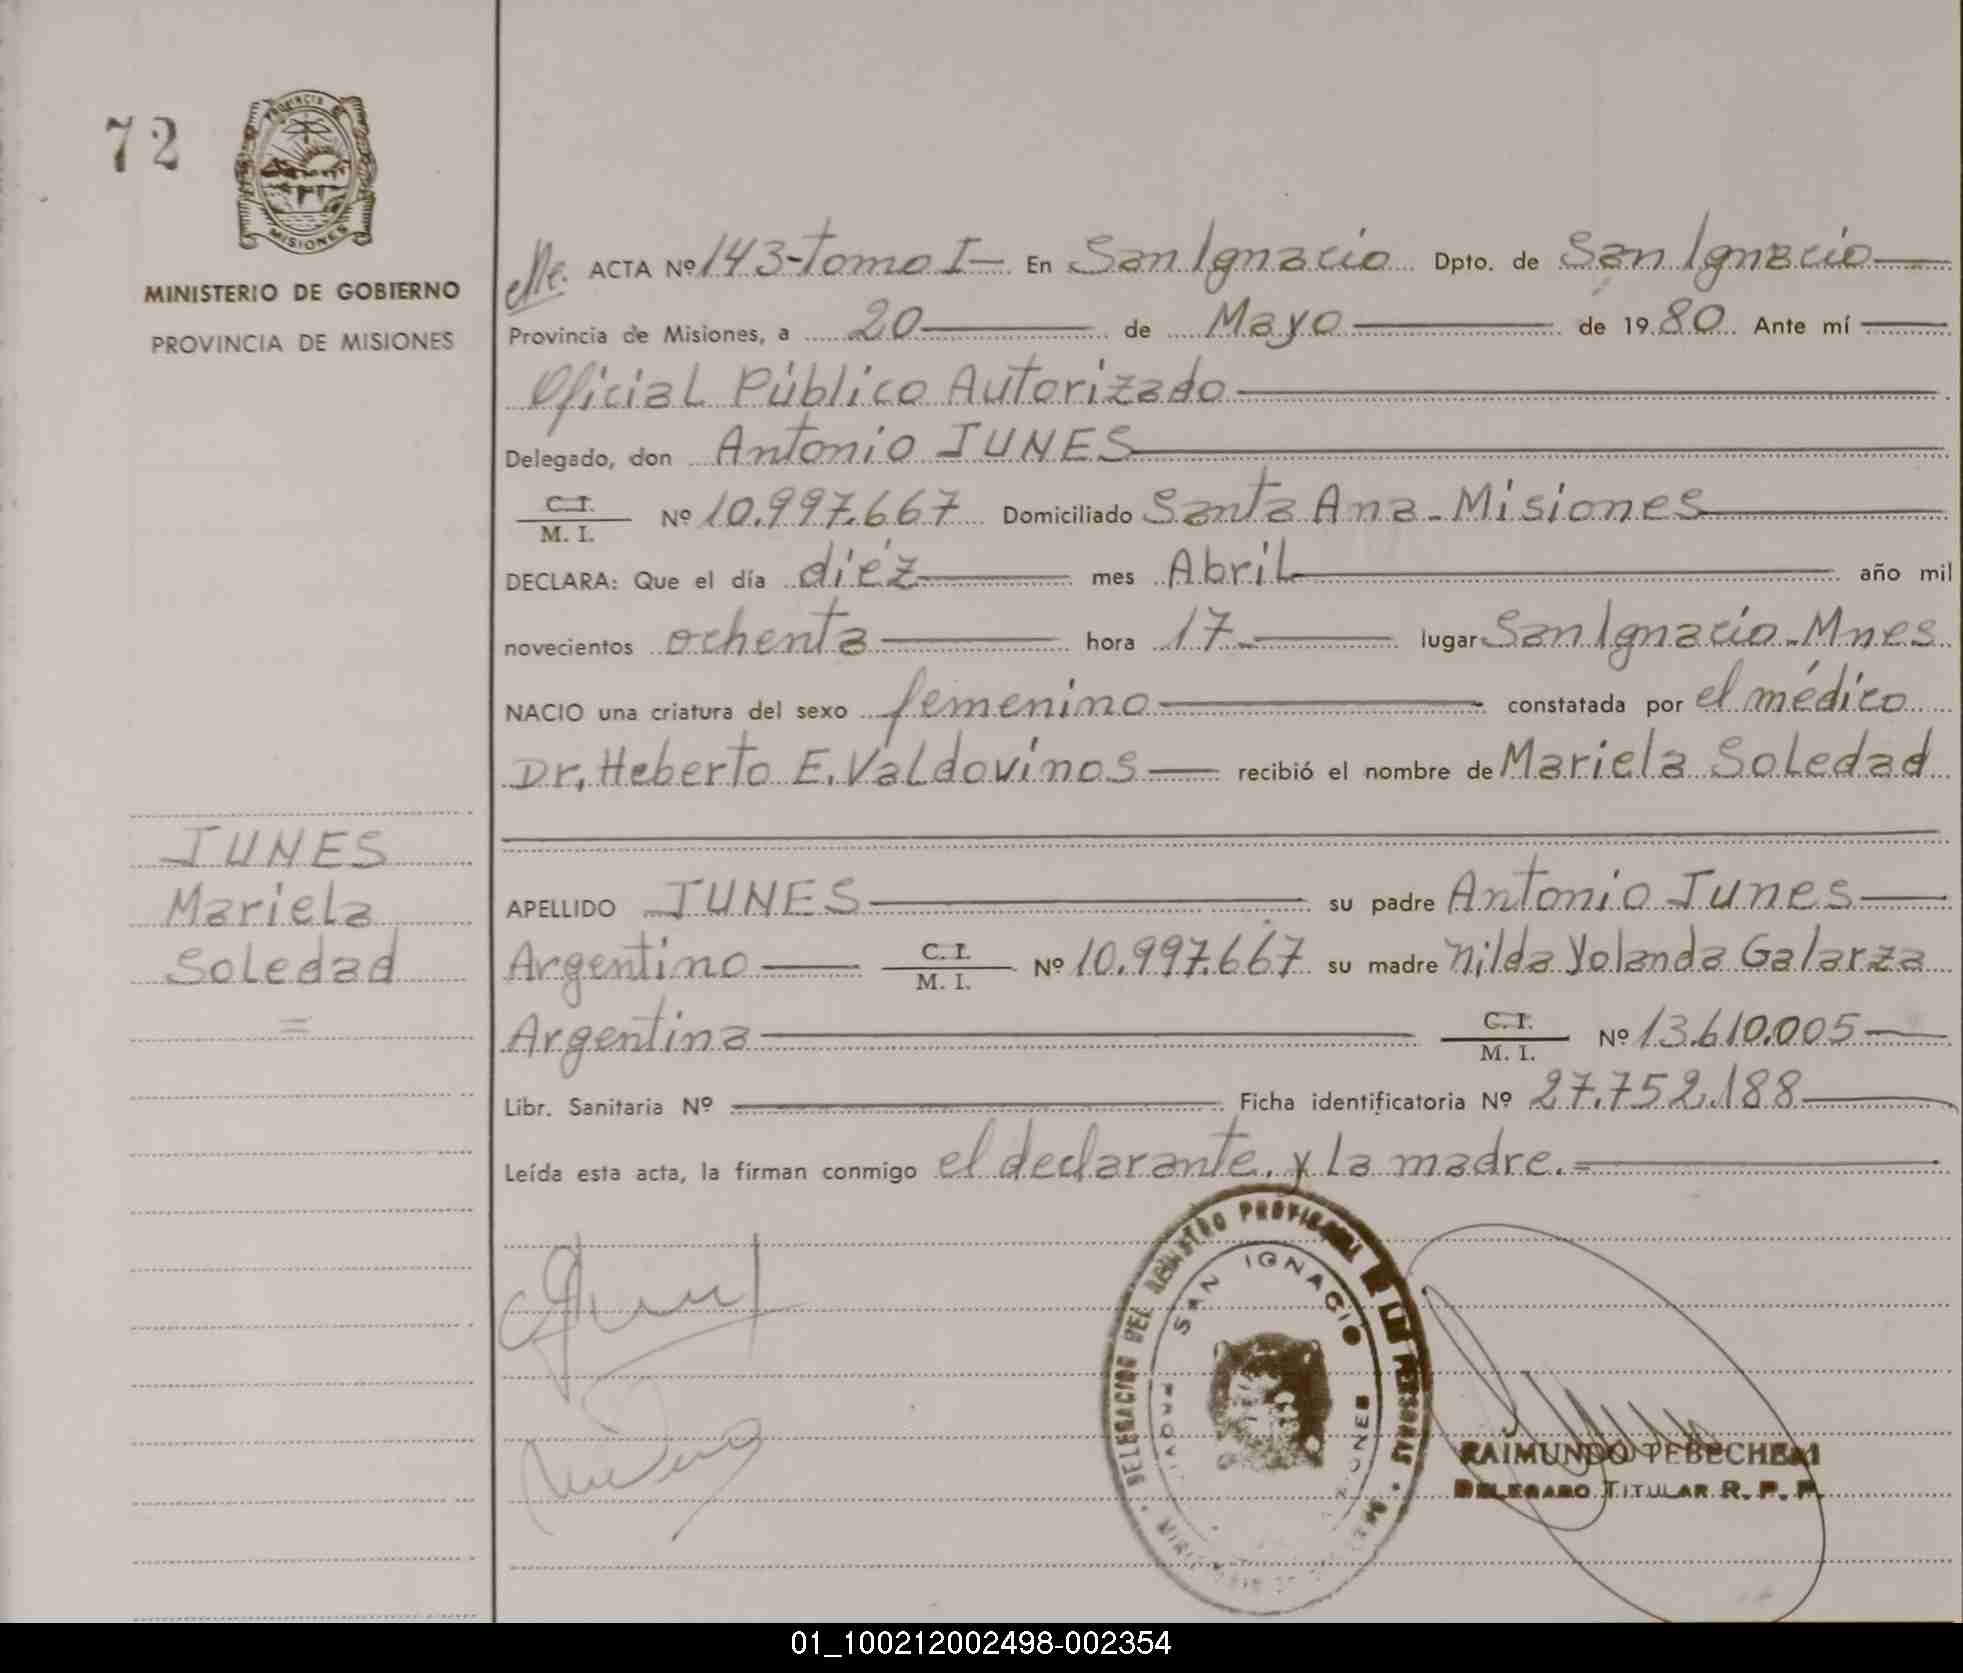 72
PROVINCIA DE
MISIONES
MINISTERIO DE GOBIERNO
PROVINCIA DE MISIONES
ACTA Nº 143-Tomo I- En San Ignacio Dpto. de San Ignacio
Provincia de Misiones, a 20 de Mayo de 1980 Ante mí
Oficial Público Autorizado
Delegado, don Antonio JUNES
C. I.
M. I.
Nº 10.997.667 Domiciliado Santa Ana - Misiones
DECLARA: Que el día diéz mes Abril año mil
novecientos ochenta hora 17 lugar San Ignacio - Mnes
NACIO una criatura del sexo femenino constatada por el médico
Dr, Heberto E. Valdovinos recibió el nombre de Mariela Soledad
JUNES
Mariela
Soledad
=
APELLIDO JUNES su padre Antonio Junes
Argentino C. I. Nº 10.997.667 su madre Nilda Yolanda Galarza
M. I.
Argentina C. I. Nº 13.610.005
M. I.
Libr. Sanitaria Nº Ficha identificatoria Nº 27.752.188
Leída esta acta, la firman conmigo el declarante, y la madre.=
DELEGACION DEL REGISTRO PROVINCIAL DE LAS PERSONAS
SAN IGNACIO
RAIMUNDO TEBECHERI
DELEGADO TITULAR R. P. P.
01_100212002498-002354